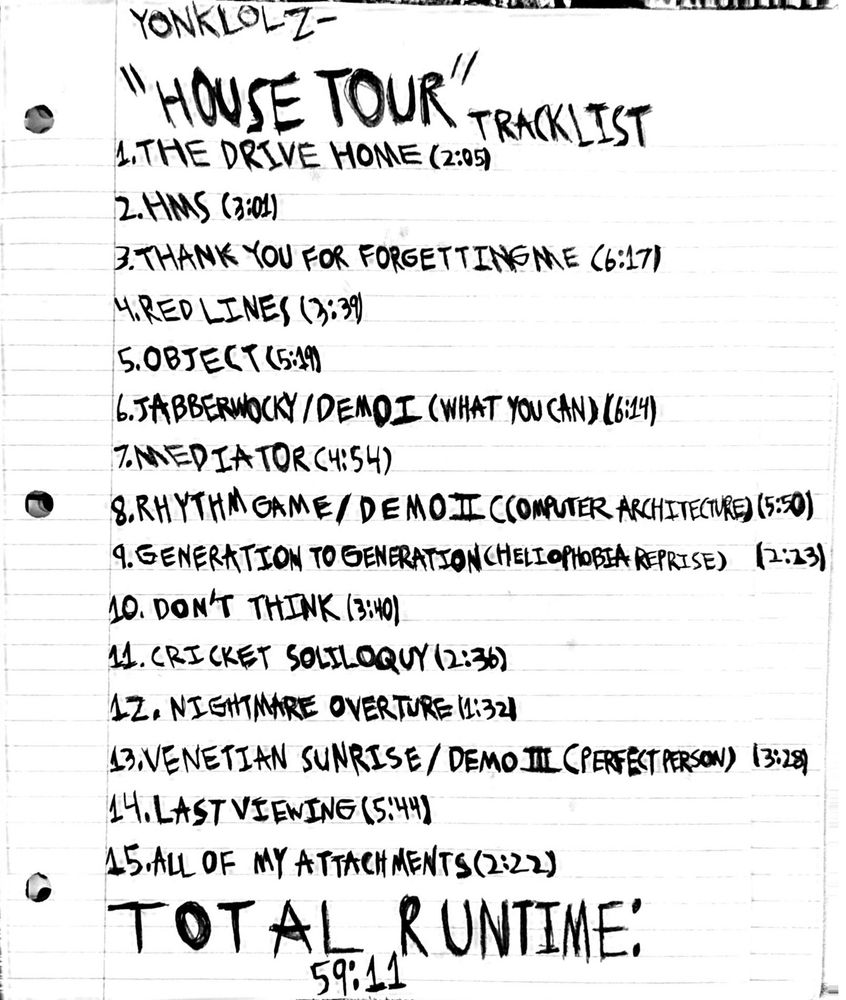 YONKLOLZ-
"HOUSE TOUR" TRACKLIST
1. THE DRIVE HOME (2:05)
2. HMS (3:01)
3. THANK YOU FOR FORGETTING ME (6:17)
4. RED LINES (3:39)
5. OBJECT (5:19)
6. JABBERWOCKY/DEMO I (WHAT YOU CAN) (6:14)
7. MEDIATOR (4:54)
8. RHYTHM GAME/DEMO II (COMPUTER ARCHITECTURE) (5:50)
9. GENERATION TO GENERATION (HELIOPHOBIA REPRISE) (2:23)
10. DON'T THINK (3:40)
11. CRICKET SOLILOQUY (2:36)
12. NIGHTMARE OVERTURE (1:32)
13. VENETIAN SUNRISE/DEMO III (PERFECT PERSON) (3:28)
14. LAST VIEWING (5:44)
15. ALL OF MY ATTACHMENTS (2:22)
TOTAL RUNTIME:
59:11